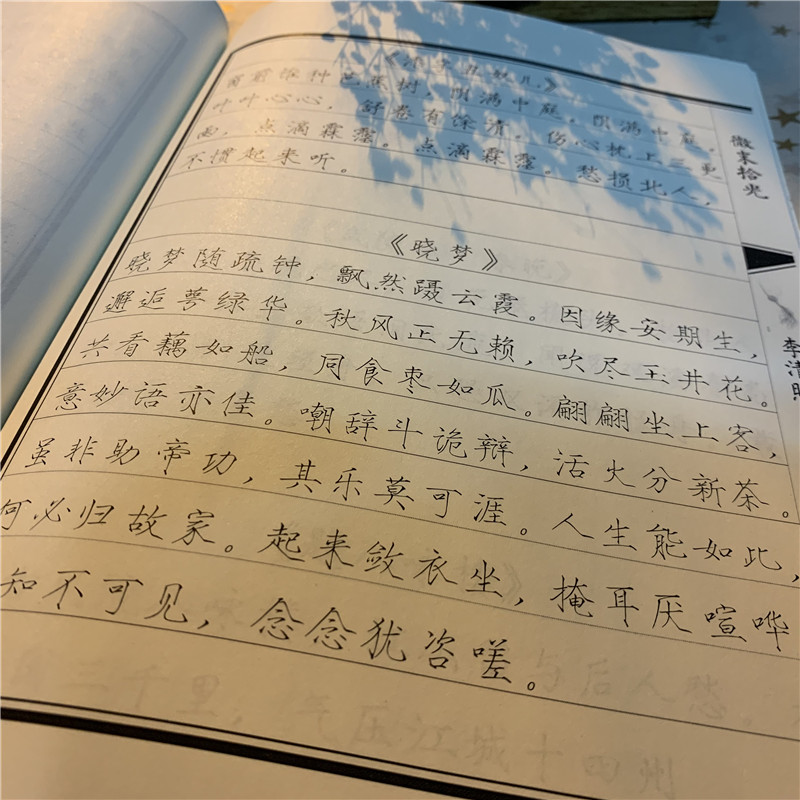 《添字丑奴儿》
窗前谁种芭蕉树，阴满中庭。阴满中庭。
叶叶心心，舒卷有馀清。伤心枕上三更
雨，点滴霖霪。点滴霖霪。愁损北人，
不惯起来听。
《晓梦》
晓梦随疏钟，飘然蹑云霞。因缘安期生，
邂逅萼绿华。秋风正无赖，吹尽玉井花。
共看藕如船，同食枣如瓜。翩翩坐上客，
意妙语亦佳。嘲辞斗诡辩，活火分新茶。
虽非助帝功，其乐莫可涯。人生能如此，
何必归故家。起来敛衣坐，掩耳厌喧哗
知不可见，念念犹咨嗟。
微末拾光
李清照
与后人愁。
三千里，气压江城十四州